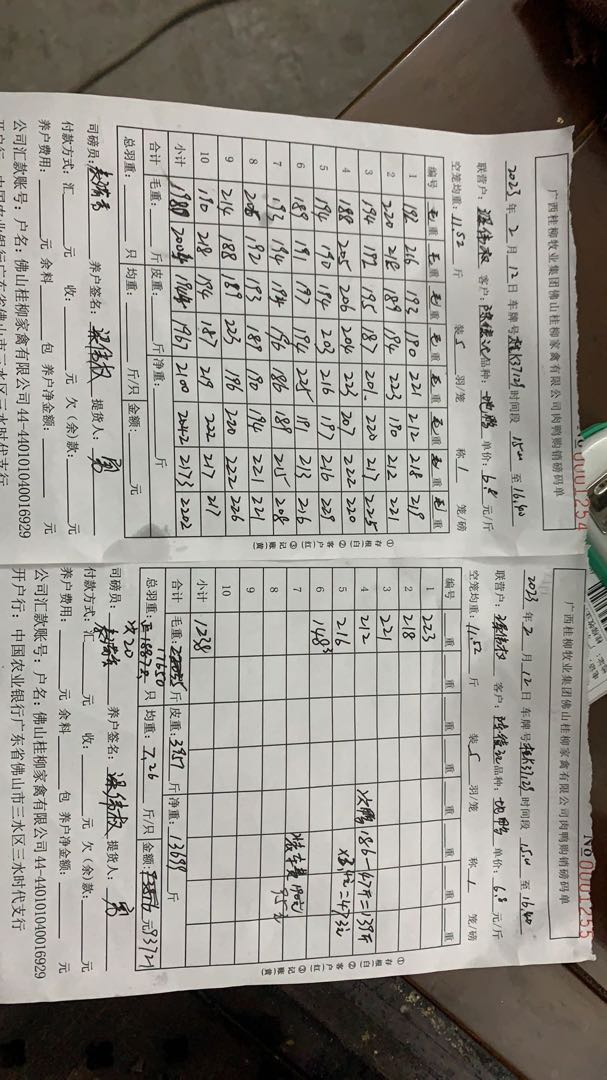 广西桂柳牧业集团佛山桂柳家禽有限公司肉鸭购销磅码单
No 0001254
2023 年 2 月 12 日 车牌号 时间段 15:00 至 16:40
联营户: 客户: 品种: 单价: 6.8 元/斤
空笼均重: 11.52 斤 装 5 羽/笼 称 1 笼/磅
编号 毛重 毛重 毛重 毛重 毛重 毛重 毛重 毛重
1 192 216 193 190 221 212 218 219
2 220 218 189 194 223 190 212 221
3 194 192 195 187 201 220 217 225
4 188 205 206 204 223 207 222 220
5 194 190 194 203 216 197 216 229
6 189 191 197 194 225 191 213 216
7 193 194 194 196 186 189 215 208
8 205 192 193 189 190 194 221 221
9 214 188 189 223 196 220 222 226
10 190 218 194 187 219 222 217 217
小计 2004 1967 2100 2042 2173 2202
合计 毛重: 斤 皮重: 斤 净重: 斤
总羽重: 只 均重: 斤/只 金额: 元
司磅员: 养户签名: 提货人:
付款方式:汇 元 收: 元 欠(余)款: 元
养户费用: 元 余料 包 养户净金额: 元
公司汇款账号:户名:佛山桂柳家禽有限公司 44-440101040016929
开户行:中国农业银行广东省佛山市三水区三水时代支行
①存根(白) ②客户(红) ③记账(黄)
广西桂柳牧业集团佛山桂柳家禽有限公司肉鸭购销磅码单
No 0001255
2023 年 2 月 12 日 车牌号 时间段 15:00 至 16:40
联营户: 客户: 品种: 单价: 6.8 元/斤
空笼均重: 11.52 斤 装 5 羽/笼 称 1 笼/磅
编号 重 重 重 重 重 重 重 重
1 223
2 218
3 221
4 212 次鸭 186-47斤=139斤
5 216 ×3.4元=473元
6 148
7
8
9
10
小计 1238
合计 毛重: 17650 斤 皮重: 3957 斤 净重: 13699 斤
总羽重: 1887 只 均重: 7.26 斤/只 金额: 93721 元
次20
司磅员: 养户签名: 提货人:
付款方式:汇 元 收: 元 欠(余)款: 元
养户费用: 元 余料 包 养户净金额: 元
公司汇款账号:户名:佛山桂柳家禽有限公司 44-440101040016929
开户行:中国农业银行广东省佛山市三水区三水时代支行
①存根(白) ②客户(红) ③记账(黄)